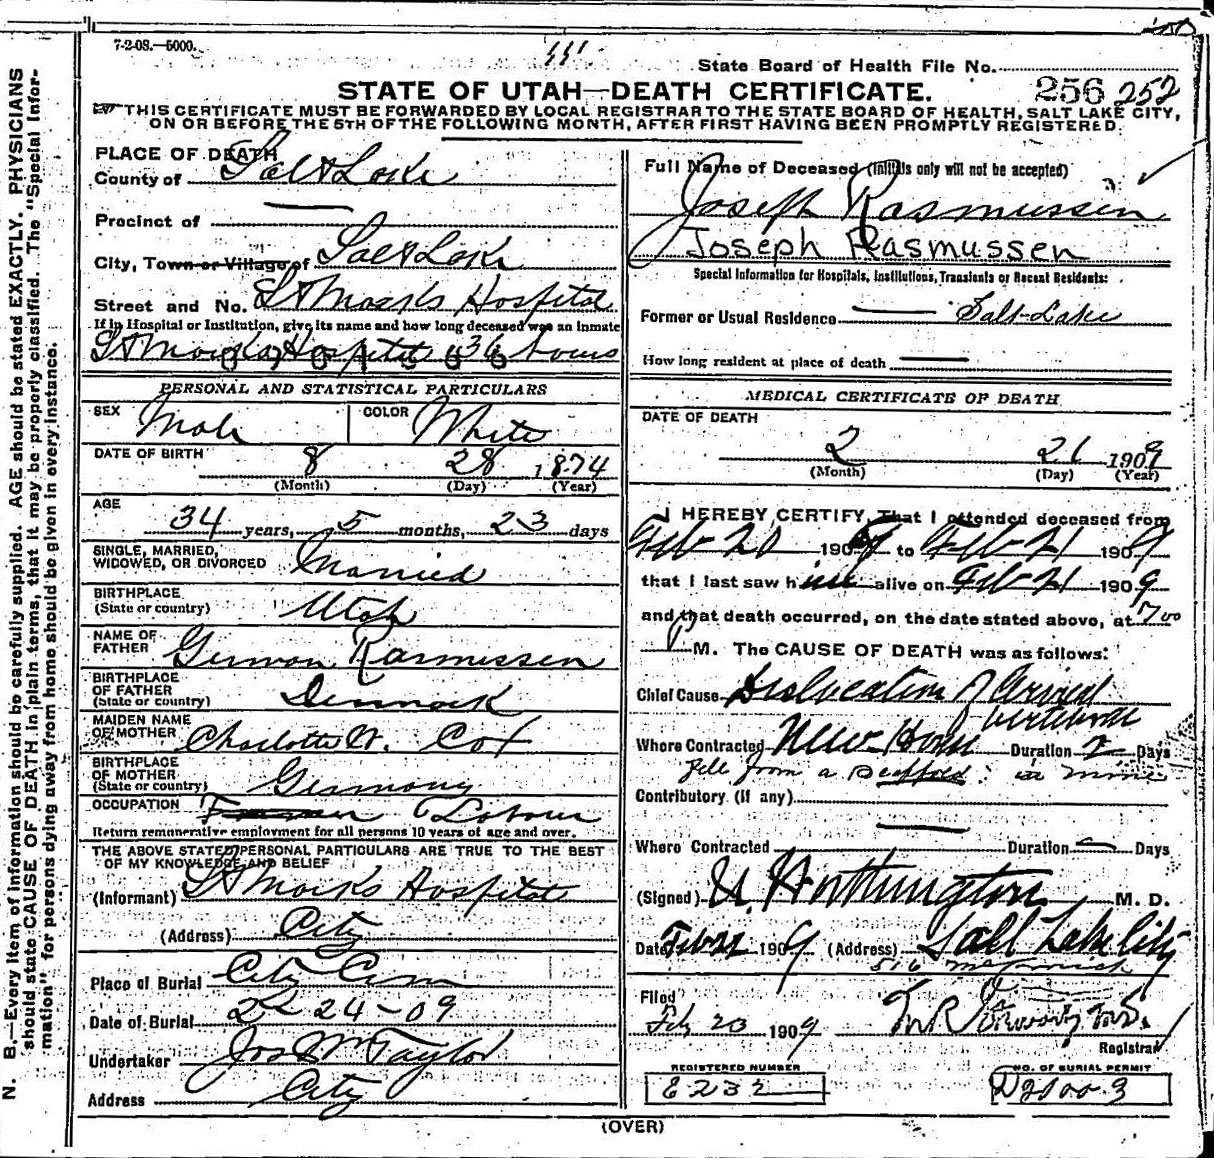 7-2-08.—5000.
State Board of Health File No.
256 252
STATE OF UTAH—DEATH CERTIFICATE.
THIS CERTIFICATE MUST BE FORWARDED BY LOCAL REGISTRAR TO THE STATE BOARD OF HEALTH, SALT LAKE CITY,
ON OR BEFORE THE 5TH OF THE FOLLOWING MONTH, AFTER FIRST HAVING BEEN PROMPTLY REGISTERED.
N. B.—Every item of information should be carefully supplied. AGE should be stated EXACTLY. PHYSICIANS
should state CAUSE OF DEATH in plain terms, that it may be properly classified. The "Special Infor-
mation" for persons dying away from home should be given in every instance.
PLACE OF DEATH
County of Salt Lake
Precinct of —
City, Town or Village of Salt Lake
Street and No. St Marks Hospital
If in Hospital or Institution, give its name and how long deceased was an inmate
St Marks Hospital 36 hours
PERSONAL AND STATISTICAL PARTICULARS
SEX Male COLOR White
DATE OF BIRTH 8 28 1874
(Month) (Day) (Year)
AGE
34 years, 5 months, 23 days
SINGLE, MARRIED,
WIDOWED, OR DIVORCED Married
BIRTHPLACE
(State or country) Utah
NAME OF
FATHER Rasmussen
BIRTHPLACE
OF FATHER
(State or country) Denmark
MAIDEN NAME
OF MOTHER Charlotte W. Cox
BIRTHPLACE
OF MOTHER
(State or country) Germany
OCCUPATION Farmer Labour
Return remunerative employment for all persons 10 years of age and over.
THE ABOVE STATED PERSONAL PARTICULARS ARE TRUE TO THE BEST
OF MY KNOWLEDGE AND BELIEF
(Informant) St Marks Hospital
(Address) City
Place of Burial City Cem
Date of Burial 2 24-09
Undertaker Jos Wm Taylor
Address City
Full Name of Deceased (Initials only will not be accepted)
Joseph Rasmussen
Joseph Rasmussen
Special Information for Hospitals, Institutions, Transients or Recent Residents:
Former or Usual Residence — Salt Lake
How long resident at place of death —
MEDICAL CERTIFICATE OF DEATH
DATE OF DEATH
2 21 1909
(Month) (Day) (Year)
I HEREBY CERTIFY, That I attended deceased from
Feb 20 1909 to Feb 21 1909
that I last saw him alive on Feb 21 1909
and that death occurred, on the date stated above, at 7 00
P M. The CAUSE OF DEATH was as follows:
Chief Cause Dislocation of Cervical
Vertebrae
Where Contracted New House Duration 2 Days
fell from a scaffold in mine
Contributory (if any)
Where Contracted Duration — Days
(Signed) U. Worthington M. D.
Date 1909 (Address) Salt Lake City
516 McCornick
Filed
Feb 23 1909
Registrar
REGISTERED NUMBER
E232
NO. OF BURIAL PERMIT
D21003
(OVER)